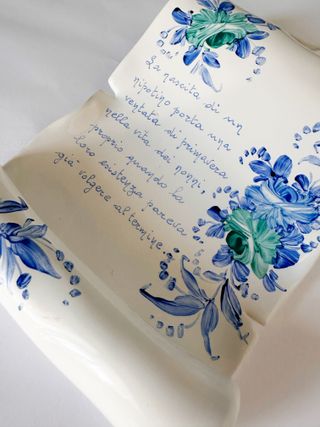 La nascita di un
nipotino porta una
ventata di primavera
nella vita dei nonni,
proprio quando la
loro esistenza pareva
già volgere al termine.